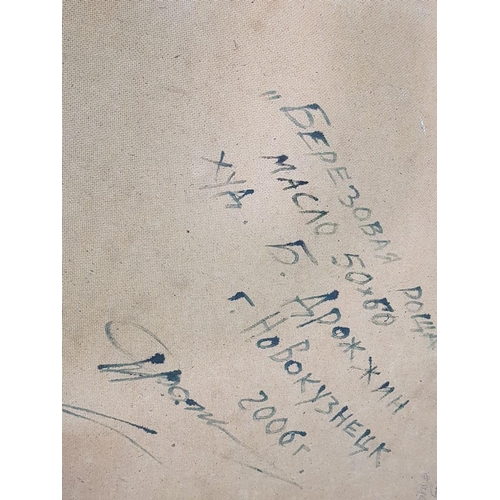 "БЕРЕЗОВАЯ РОЩА
МАСЛО 50х60
ХУД. Б. ДРОЖЖИН
г. НОВОКУЗНЕЦК
2006г.